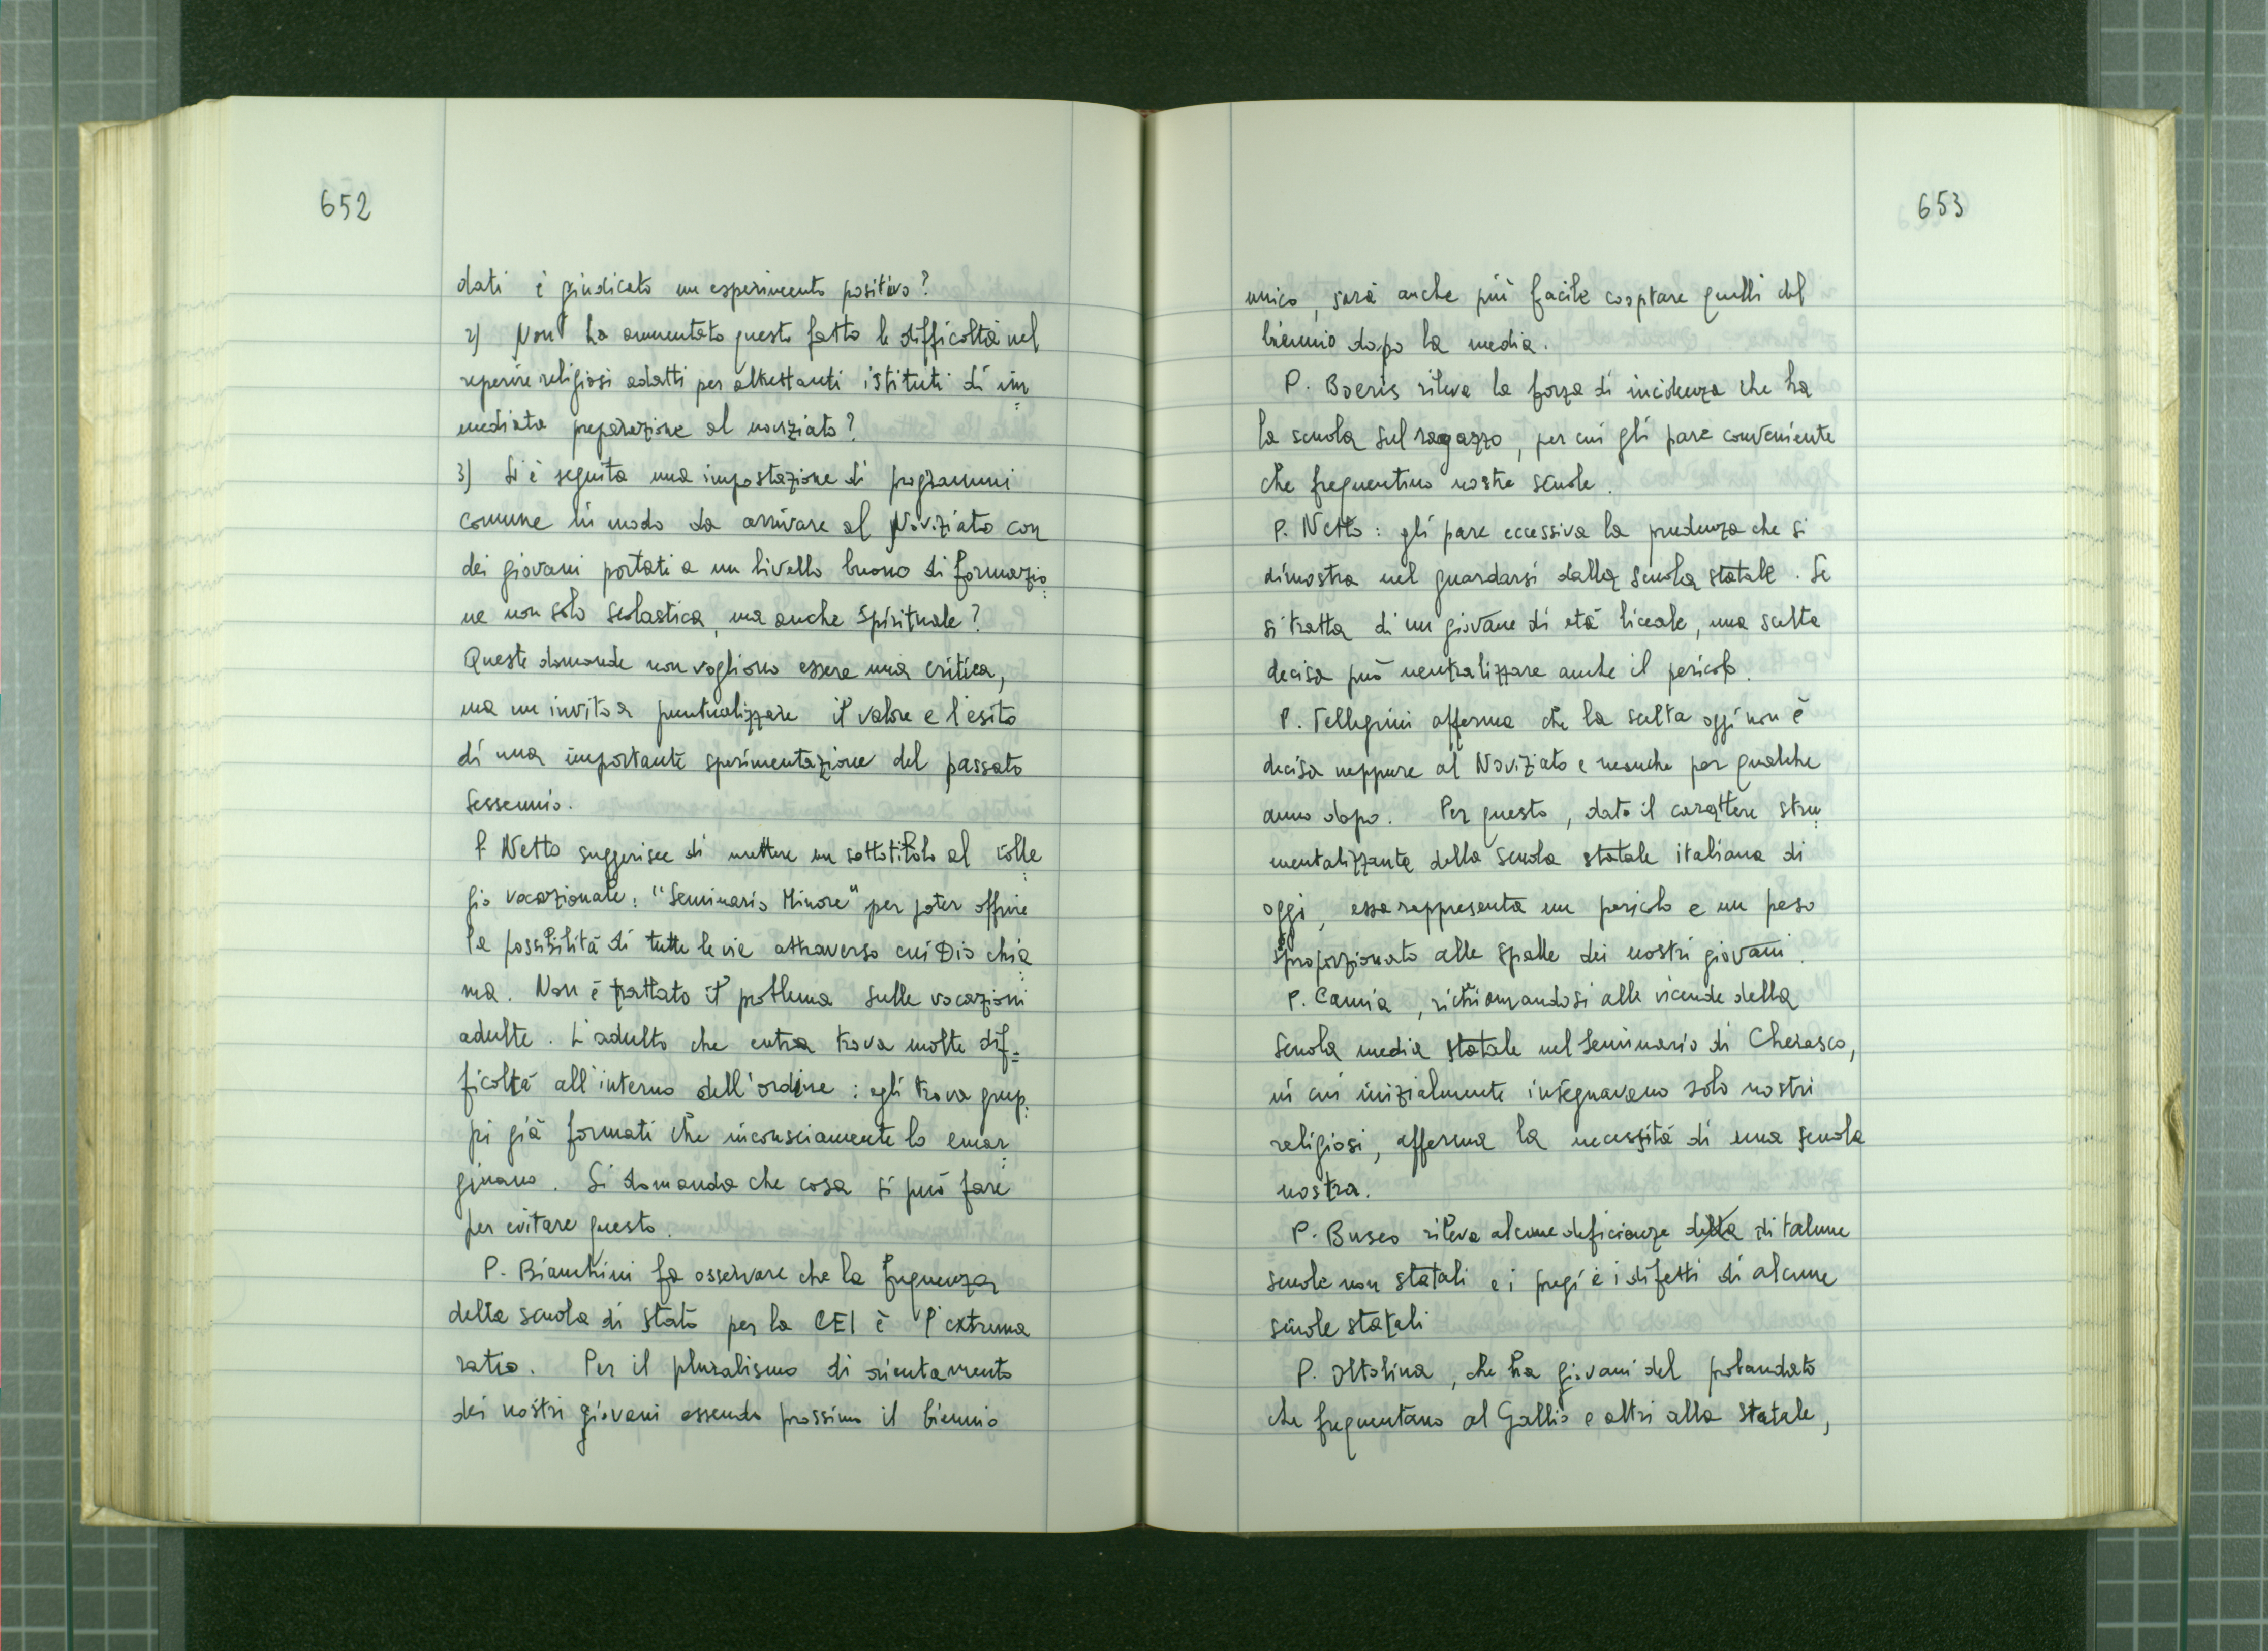 652
dati è giudicato un esperimento positivo?
2) Non ha aumentato questo fatto le difficoltà nel
reperire religiosi adatti per altrettanti istituti di im=
mediata preparazione al noviziato?
3) Si è seguita una impostazione di programmi
comune in modo da arrivare al Noviziato con
dei giovani portati a un livello buono di formazio=
ne non solo scolastica, ma anche spirituale?
Queste domande non vogliono essere una critica,
ma un invito a puntualizzare il valore e l'esito
di una importante sperimentazione del passato
sessennio.
P Netto suggerisce di mettere un sottotitolo al colle=
gio vocazionale: "Seminario Minore" per poter offrire
la possibilità di tutte le vie attraverso cui Dio chia=
ma. Non è trattato il problema sulle vocazioni
adulte. L'adulto che entra trova molte dif=
ficoltà all'interno dell'ordine: egli trova grup=
pi già formati che inconsciamente lo emar=
ginano. Si domanda che cosa si può fare
per evitare questo.
P. Bianchini fa osservare che la frequenza
della scuola di stato per la CEI è l'extrema
ratio. Per il pluralismo di orientamento
dei nostri giovani essendo prossimo il biennio
653
unico, sarà anche più facile cooptare quelli del
biennio dopo la media.
P. Boeris rileva la forza di incidenza che ha
la scuola sul ragazzo, per cui gli pare conveniente
che frequentino nostre scuole.
P. Netto: gli pare eccessiva la prudenza che si
dimostra nel guardarsi dalla scuola statale. Se
si tratta di un giovane di età liceale, una scelta
decisa può neutralizzare anche il pericolo.
P. Pellegrini afferma che la scelta oggi non è
decisa neppure al Noviziato e neanche per qualche
anno dopo. Per questo, dato il carattere stru=
mentalizzante della scuola statale italiana di
oggi, essa rappresenta un pericolo e un peso
sproporzionato alle spalle dei nostri giovani.
P. Camia, richiamandosi alle vicende della
scuola media statale nel Seminario di Cherasco,
in cui inizialmente insegnavano solo nostri
religiosi, afferma la necessità di una scuola
nostra.
P. Busco rileva alcune deficienze della di talune
scuole non statali e i pregi e i difetti di alcune
scuole statali
P. Ottolina, che ha giovani del probandato
che frequentano al Gallio e altri alla statale,